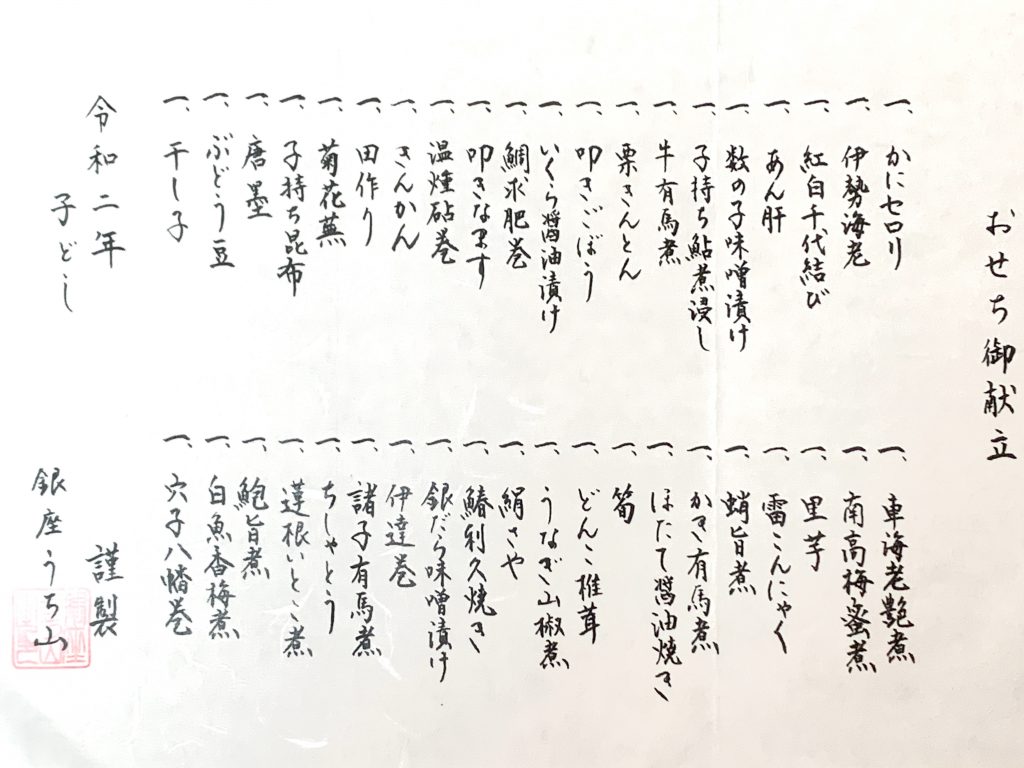 おせち御献立
一、かにセロリ
一、伊勢海老
一、紅白千代結び
一、あん肝
一、数の子味噌漬け
一、子持ち鮎煮浸し
一、牛有馬煮
一、栗きんとん
一、叩きごぼう
一、いくら醤油漬け
一、鯛求肥巻
一、叩きなます
一、温燻砧巻
一、きんかん
一、田作り
一、菊花蕪
一、子持ち昆布
一、唐墨
一、ぶどう豆
一、干し子
一、車海老艶煮
一、南高梅蜜煮
一、里芋
一、雷こんにゃく
一、蛸旨煮
一、かき有馬煮
一、ほたて醤油焼き
一、筍
一、どんこ椎茸
一、うなぎ山椒煮
一、絹さや
一、鰆利久焼き
一、銀だら味噌漬け
一、伊達巻
一、諸子有馬煮
一、ちしゃとう
一、蓮根いとこ煮
一、鮑旨煮
一、白魚香梅煮
一、穴子八幡巻
令和二年
子どし
謹製
銀座うち山